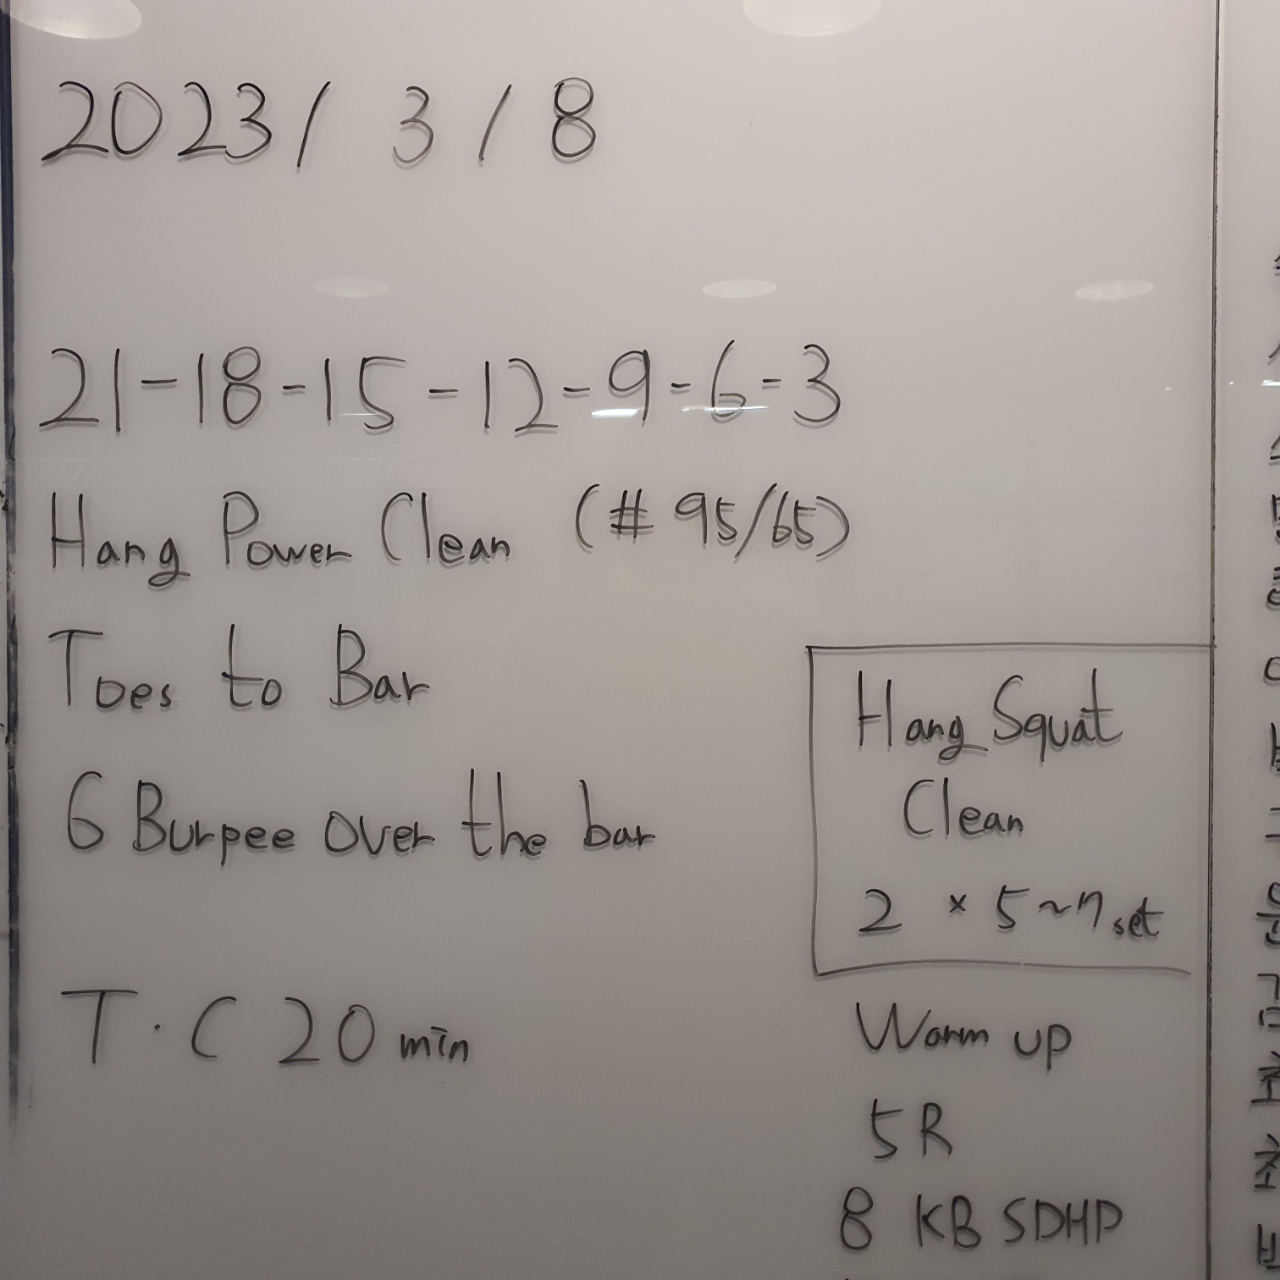 2023/ 3 / 8
21-18-15-12-9-6-3
Hang Power Clean (# 95/65)
Toes to Bar
6 Burpee over the bar
T.C 20 min
Hang Squat
Clean
2 × 5~7 set
Warm up
5R
8 KB SDHP